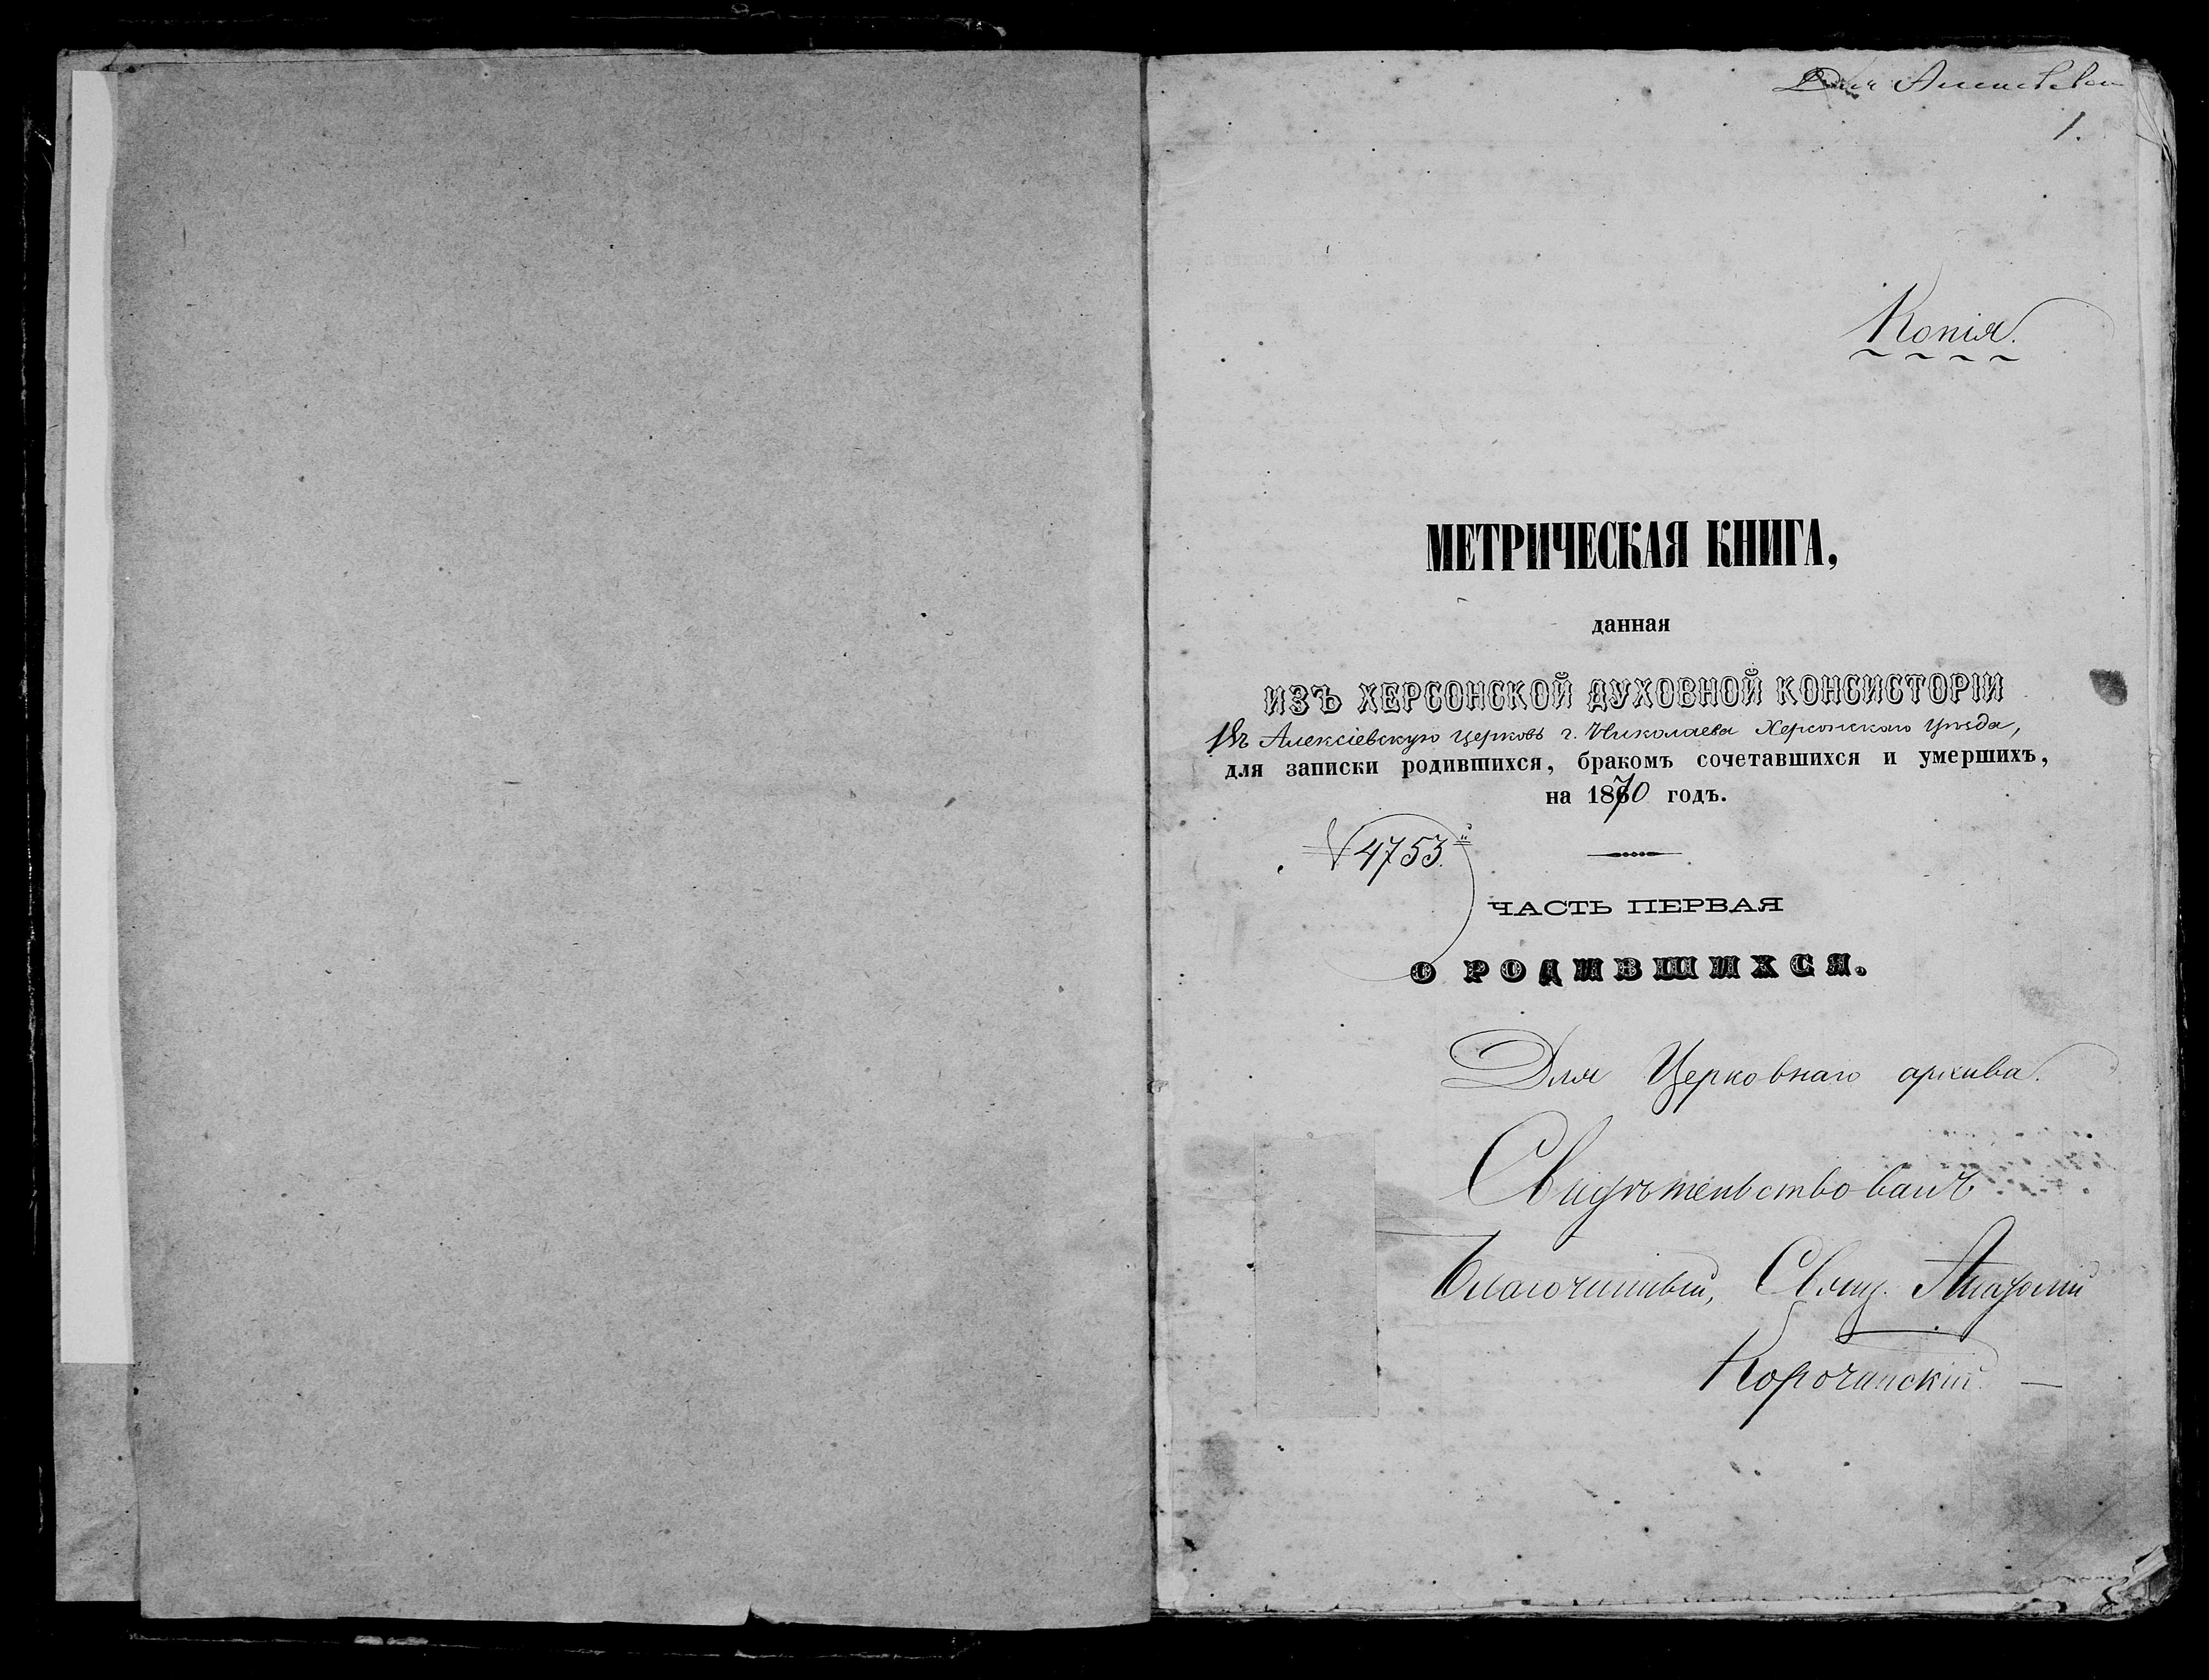 Для
1.
Копія.
МЕТРИЧЕСКАЯ КНИГА,
данная
ИЗЪ ХЕРСОНСКОЙ ДУХОВНОЙ КОНСИСТОРІИ
Въ Алексіевскую церковь г. Николаева Херсонскаго уѣзда,
для записки родившихся, бракомъ сочетавшихся и умершихъ,
на 1870 годъ.
№ 4753.
ЧАСТЬ ПЕРВАЯ
О РОДИВШИХСЯ.
Для Церковнаго архива.
Свидѣтельствовалъ
Благочинный, Свящ.
Корочанскій.